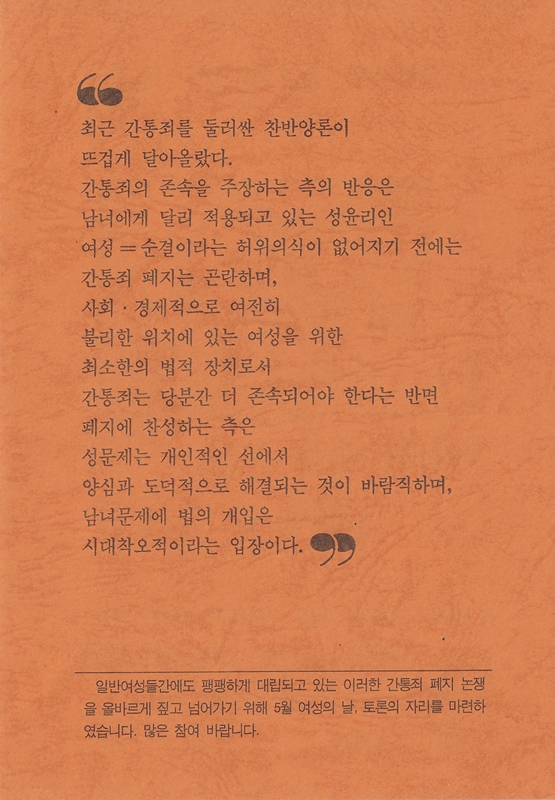 “
최근 간통죄를 둘러싼 찬반양론이
뜨겁게 달아올랐다.
간통죄의 존속을 주장하는 측의 반응은
남녀에게 달리 적용되고 있는 성윤리인
여성＝순결이라는 허위의식이 없어지기 전에는
간통죄 폐지는 곤란하며,
사회·경제적으로 여전히
불리한 위치에 있는 여성을 위한
최소한의 법적 장치로서
간통죄는 당분간 더 존속되어야 한다는 반면
폐지에 찬성하는 측은
성문제는 개인적인 선에서
양심과 도덕적으로 해결되는 것이 바람직하며,
남녀문제에 법의 개입은
시대착오적이라는 입장이다. ”
일반여성들간에도 팽팽하게 대립되고 있는 이러한 간통죄 폐지 논쟁
을 올바르게 짚고 넘어가기 위해 5월 여성의 날, 토론의 자리를 마련하
였습니다. 많은 참여 바랍니다.